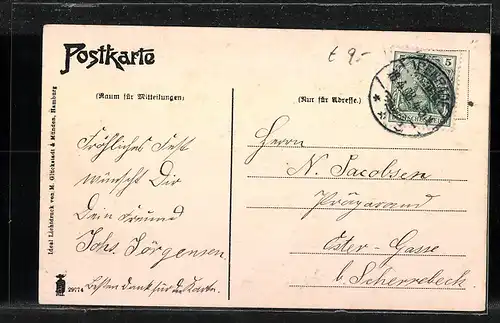 Postkarte
€ 9.-
5
(Raum für Mitteilungen)
(Nur für Adresse.)
Fröhliches Fest
wünscht Dir
Dein Freund
Johs. Jörgensen.
Besten Dank für d. Karte.
Herrn
N. Jacobsen
Präparand
Oster-Gasse
b. Scherrebeck.
Ideal Lichtdruck von M. Glückstadt & Münden, Hamburg
29774